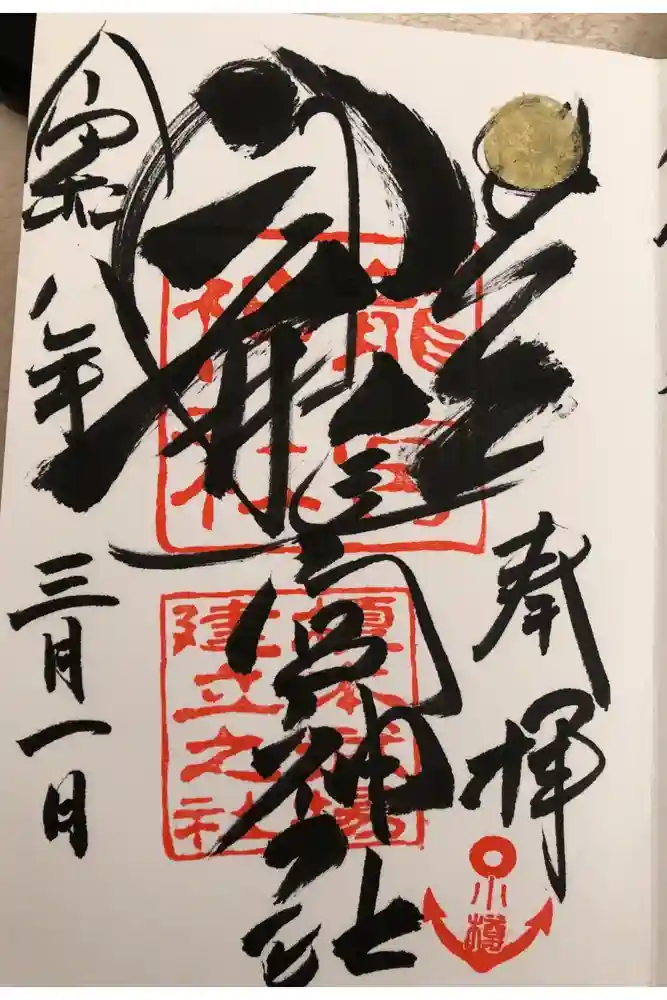 奉拝
小樽
龍宮神社
龍宮
神社
榎本武揚
建立之社
令和八年三月一日